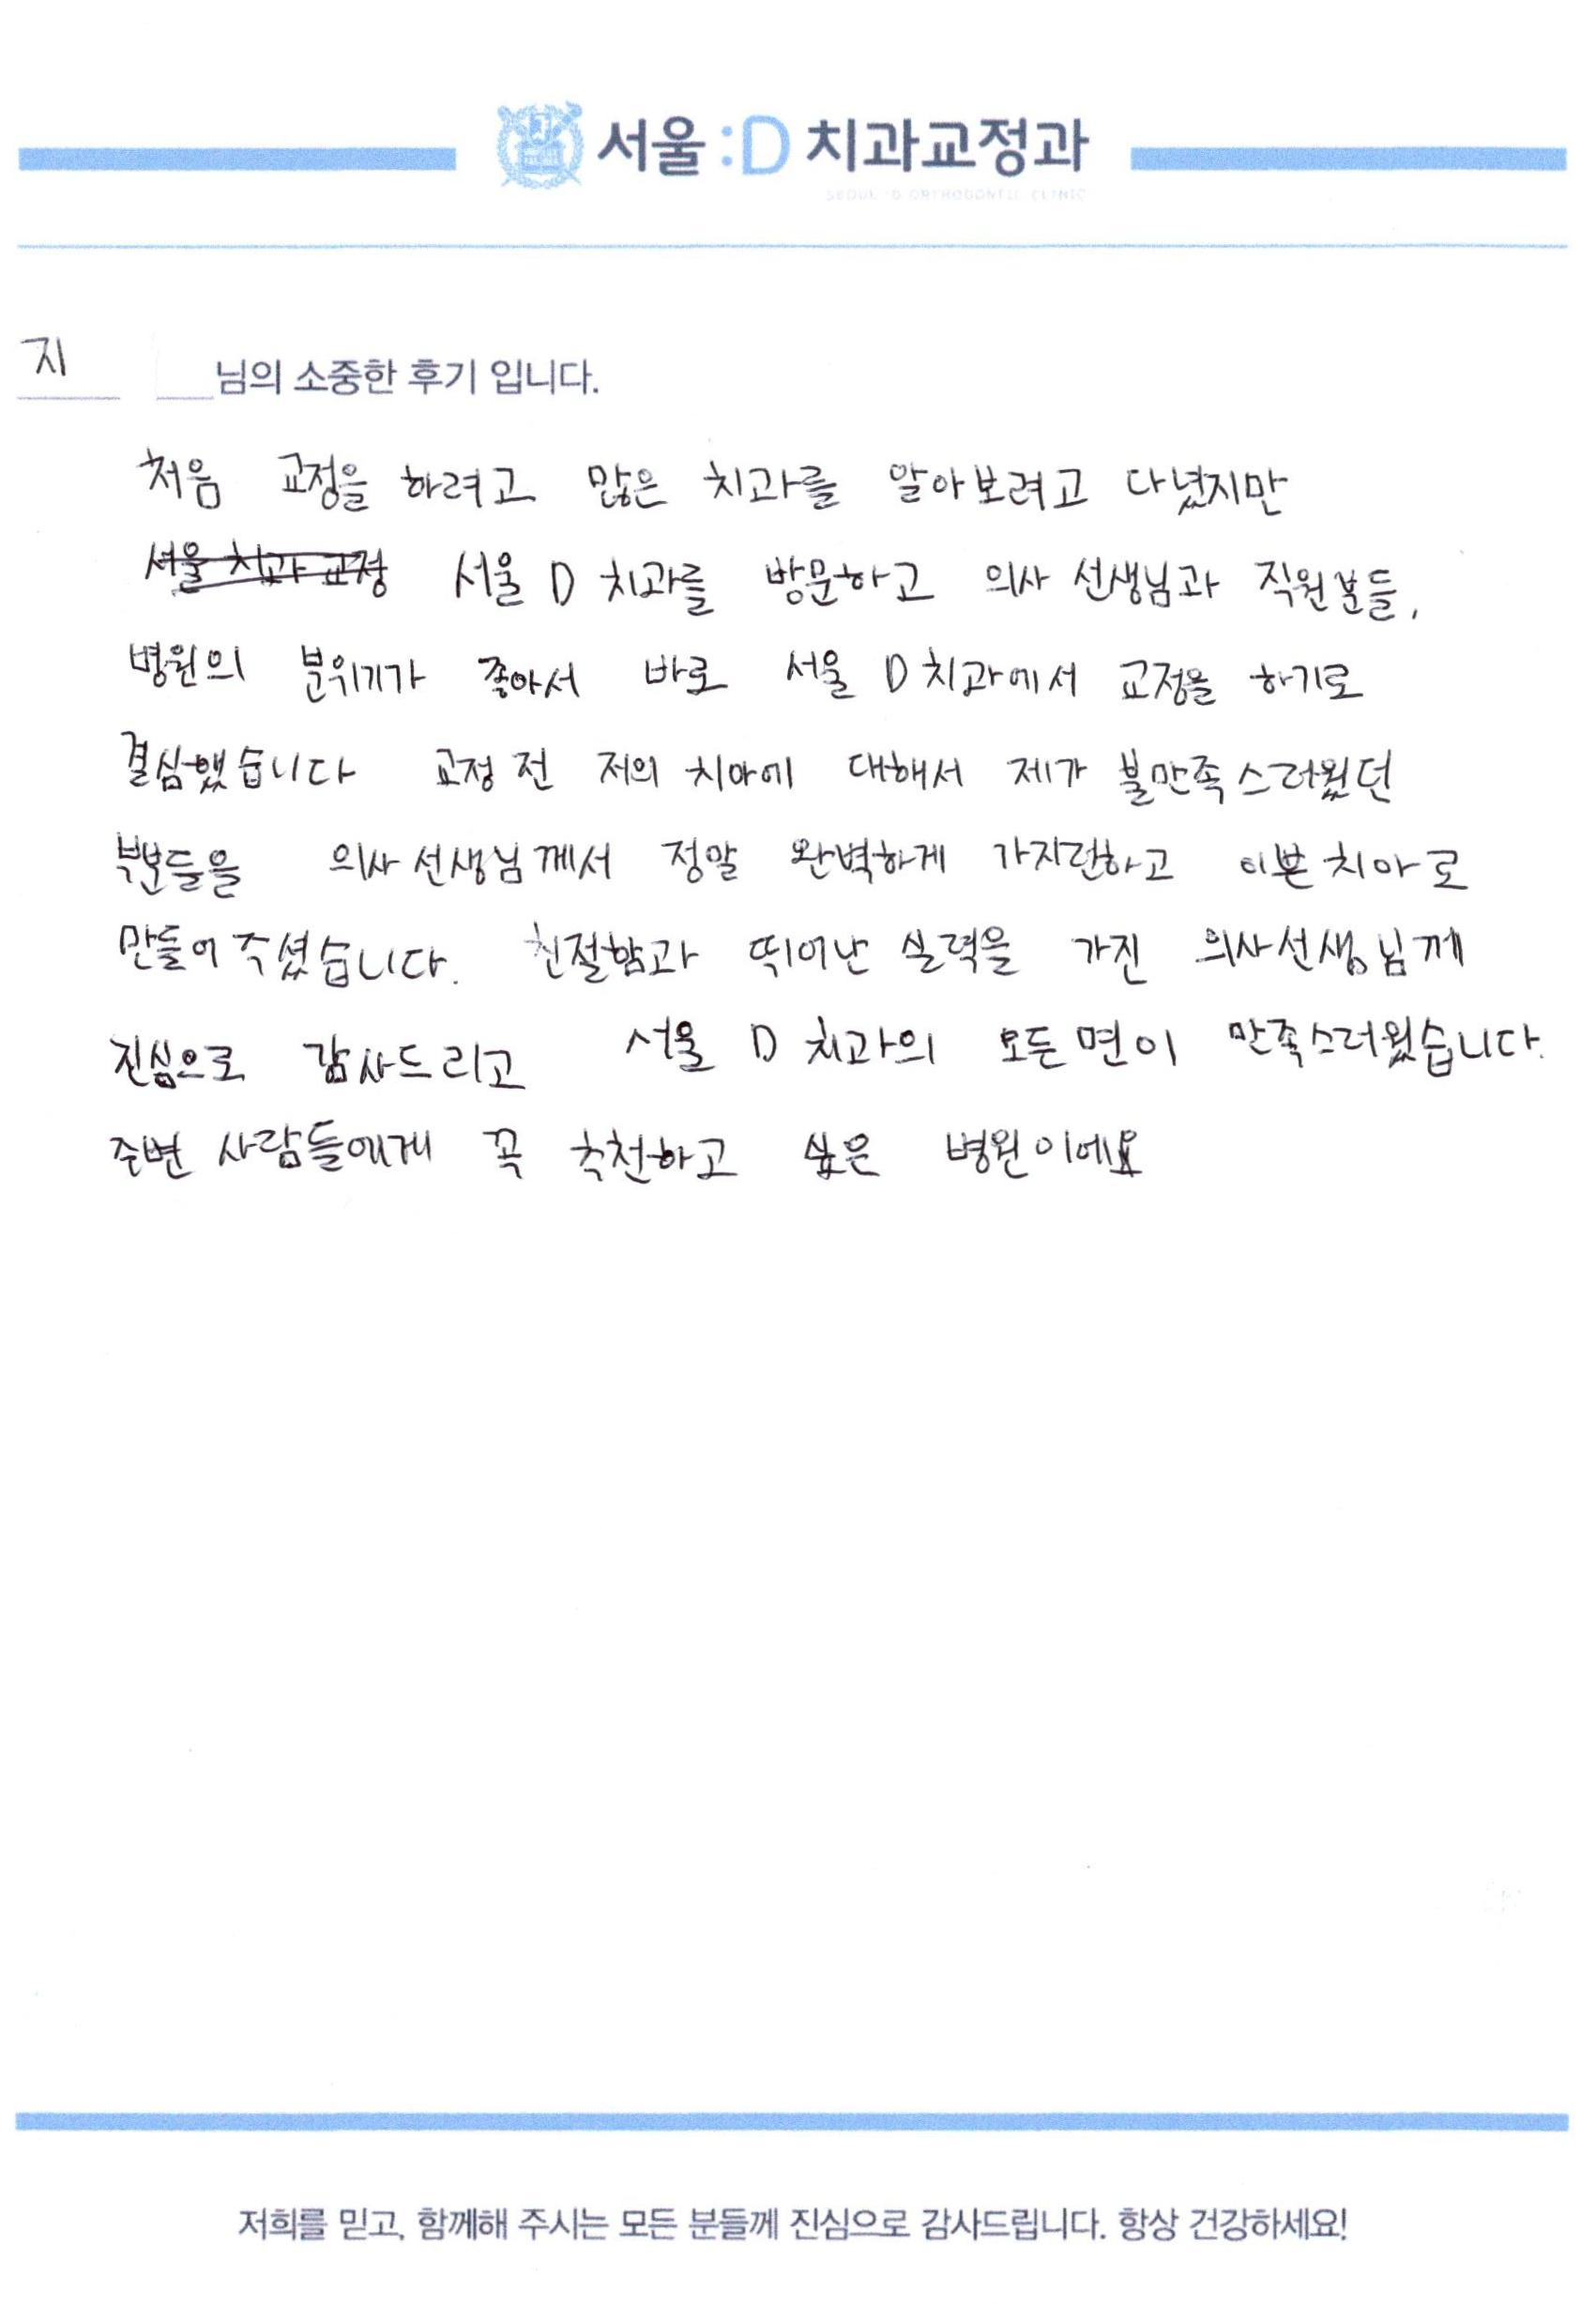 서울:D 치과교정과
SEOUL :D ORTHODONTIC CLINIC
지 님의 소중한 후기 입니다.
처음 교정을 하려고 많은 치과를 알아보려고 다녔지만
서울 치과 교정 서울 D 치과를 방문하고 의사 선생님과 직원분들,
병원의 분위기가 좋아서 바로 서울 D 치과에서 교정을 하기로
결심했습니다 교정 전 저의 치아에 대해서 제가 불만족스러웠던
부분들을 의사 선생님께서 정말 완벽하게 가지런하고 이쁜 치아로
만들어 주셨습니다. 친절함과 뛰어난 실력을 가진 의사선생님께
진심으로 감사드리고 서울 D 치과의 모든 면이 만족스러웠습니다.
주변 사람들에게 꼭 추천하고 싶은 병원이에요
저희를 믿고, 함께해 주시는 모든 분들께 진심으로 감사드립니다. 항상 건강하세요!